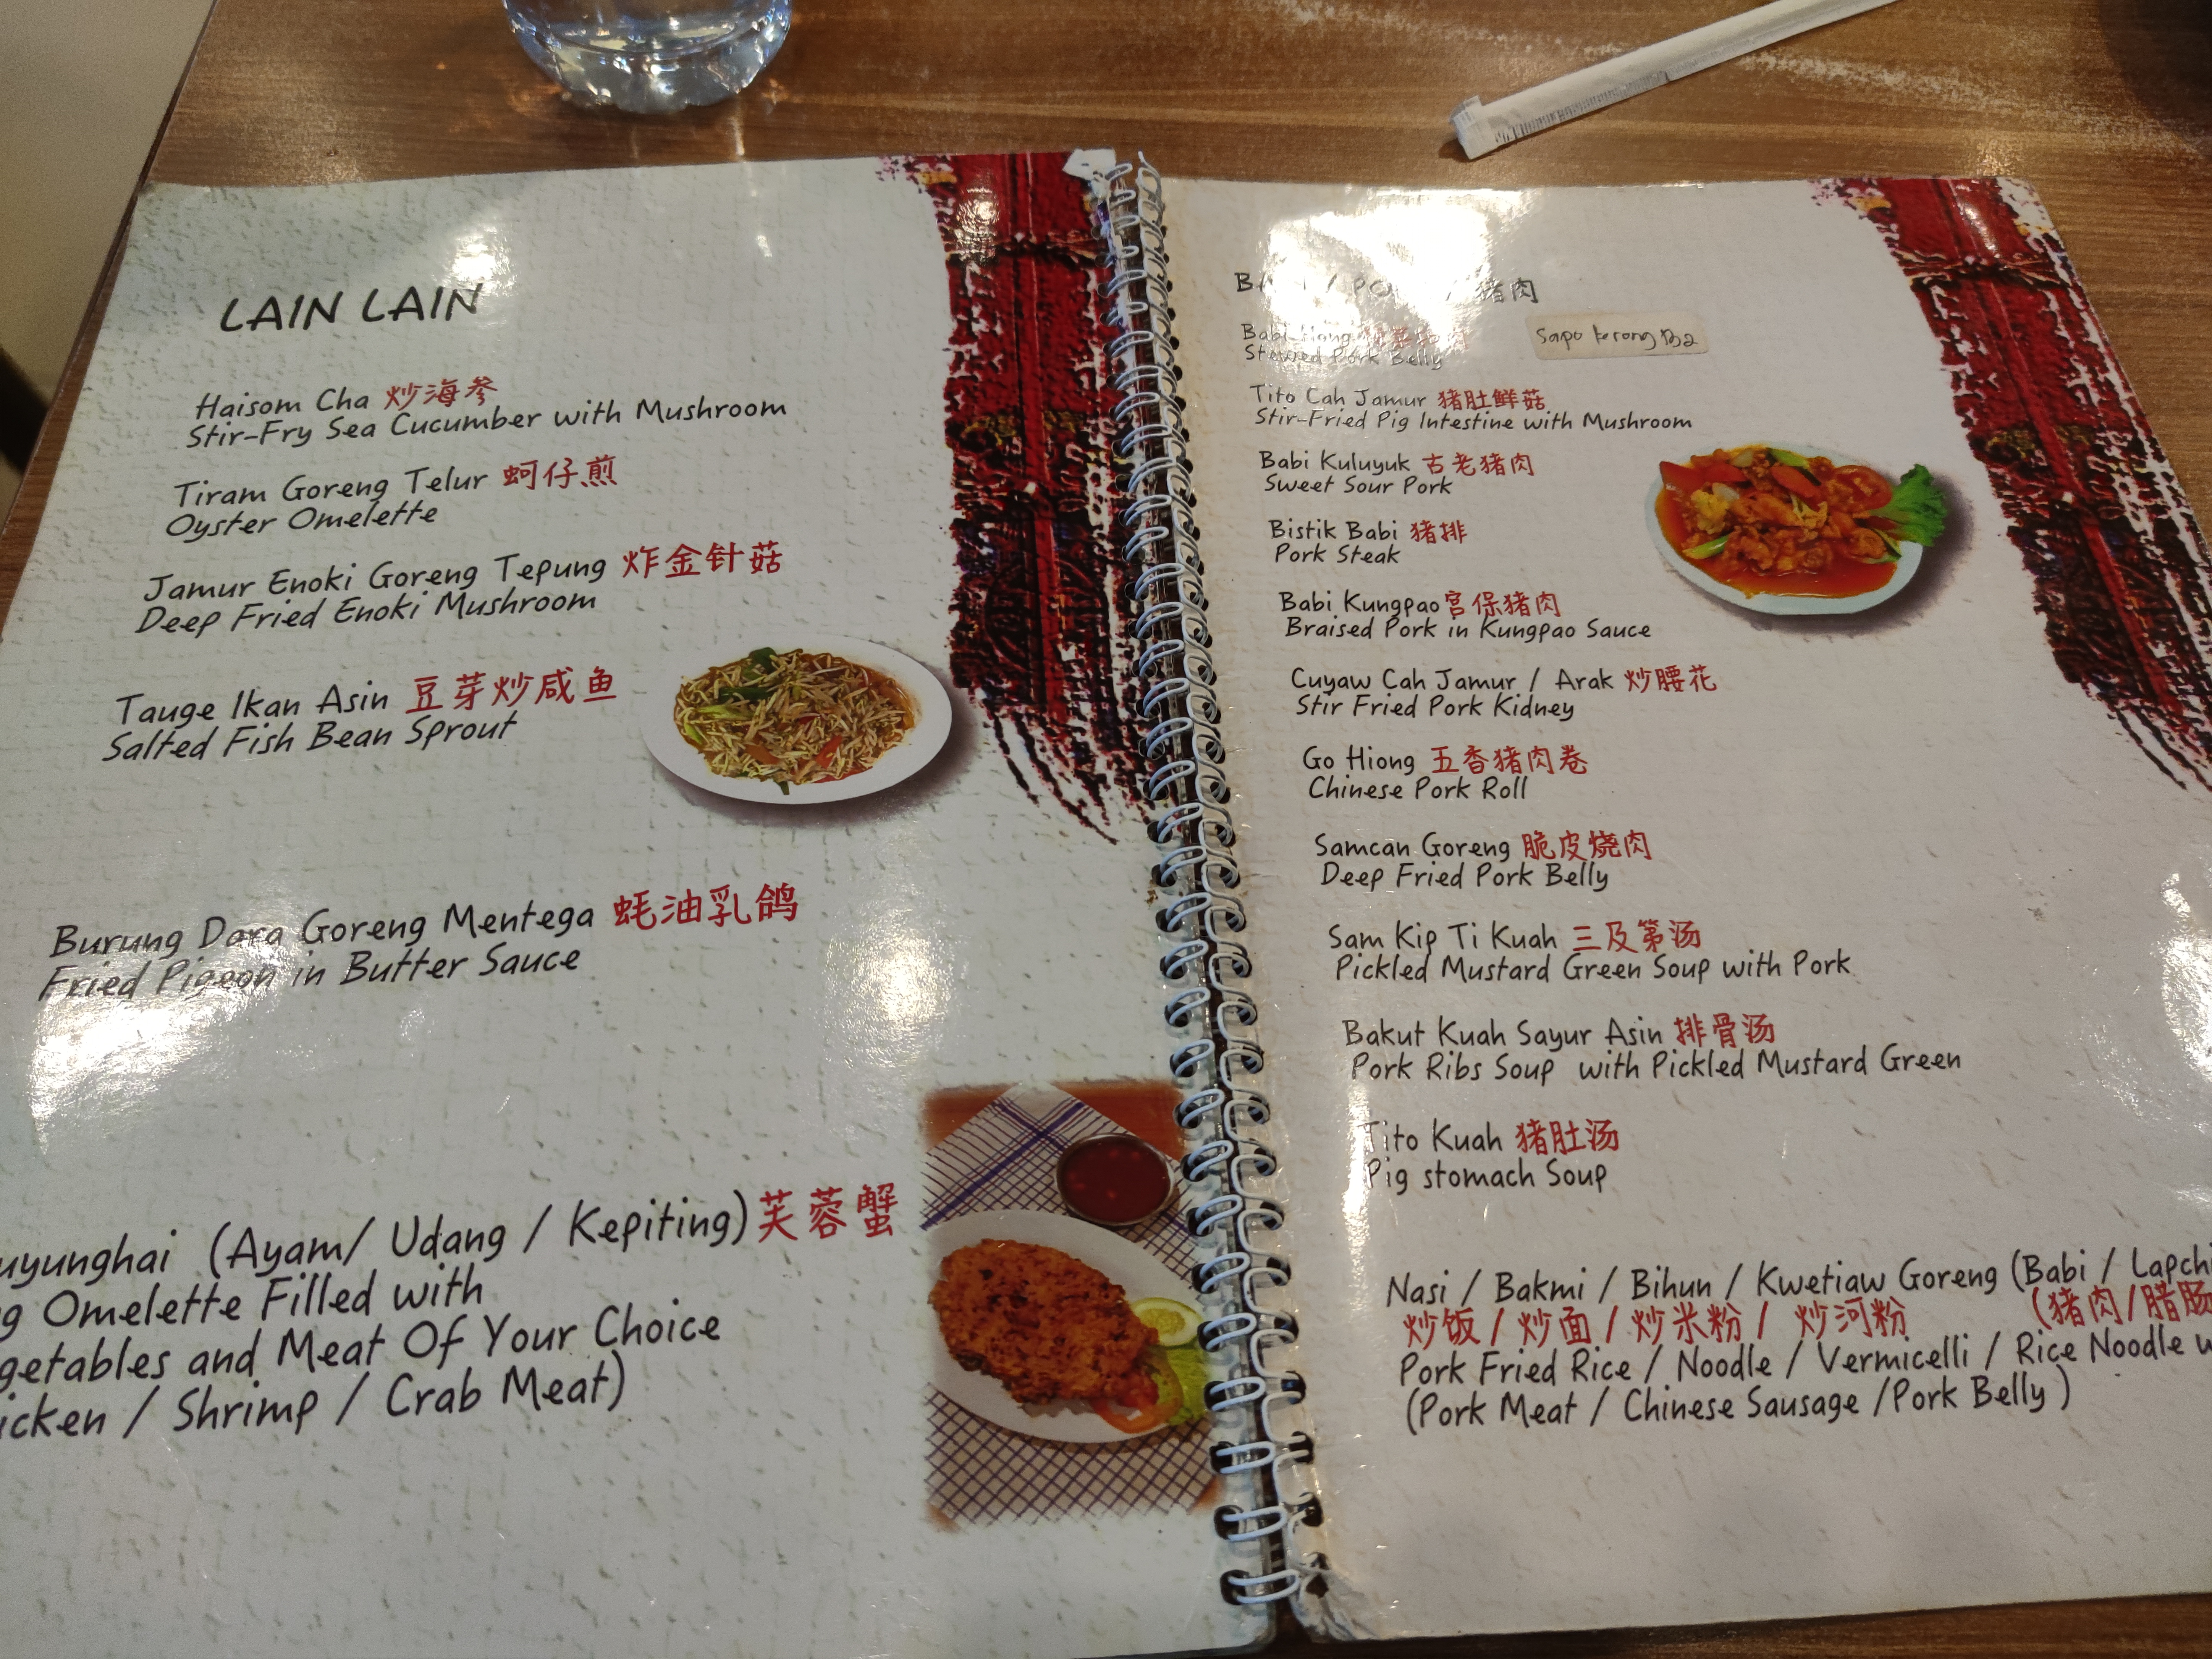 LAIN LAIN
Haisom Cha 炒海参
Stir-Fry Sea Cucumber with Mushroom
Tiram Goreng Telur 蚵仔煎
Oyster Omelette
Jamur Enoki Goreng Tepung 炸金针菇
Deep Fried Enoki Mushroom
Tauge Ikan Asin 豆芽炒咸鱼
Salted Fish Bean Sprout
Burung Dara Goreng Mentega 蚝油乳鸽
Fried Pigeon in Butter Sauce
uyunghai (Ayam/ Udang / Kepiting) 芙蓉蟹
g Omelette Filled with
getables and Meat Of Your Choice
icken / Shrimp / Crab Meat)
/ 猪肉
Babi
Stewed Pork Belly
Sapo terong Ba2
Tito Cah Jamur 猪肚鲜菇
Stir-Fried Pig Intestine with Mushroom
Babi Kuluyuk 古老猪肉
Sweet Sour Pork
Bistik Babi 猪排
Pork Steak
Babi Kungpao 宫保猪肉
Braised Pork in Kungpao Sauce
Cuyaw Cah Jamur / Arak 炒腰花
Stir Fried Pork Kidney
Go Hiong 五香猪肉卷
Chinese Pork Roll
Samcan Goreng 脆皮烧肉
Deep Fried Pork Belly
Sam Kip Ti Kuah 三及第汤
Pickled Mustard Green Soup with Pork
Bakut Kuah Sayur Asin 排骨汤
Pork Ribs Soup with Pickled Mustard Green
Tito Kuah 猪肚汤
Pig stomach Soup
Nasi / Bakmi / Bihun / Kwetiaw Goreng (Babi / Lapchi
炒饭 / 炒面 / 炒米粉 / 炒河粉 (猪肉/腊肠
Pork Fried Rice / Noodle / Vermicelli / Rice Noodle w
(Pork Meat / Chinese Sausage /Pork Belly )